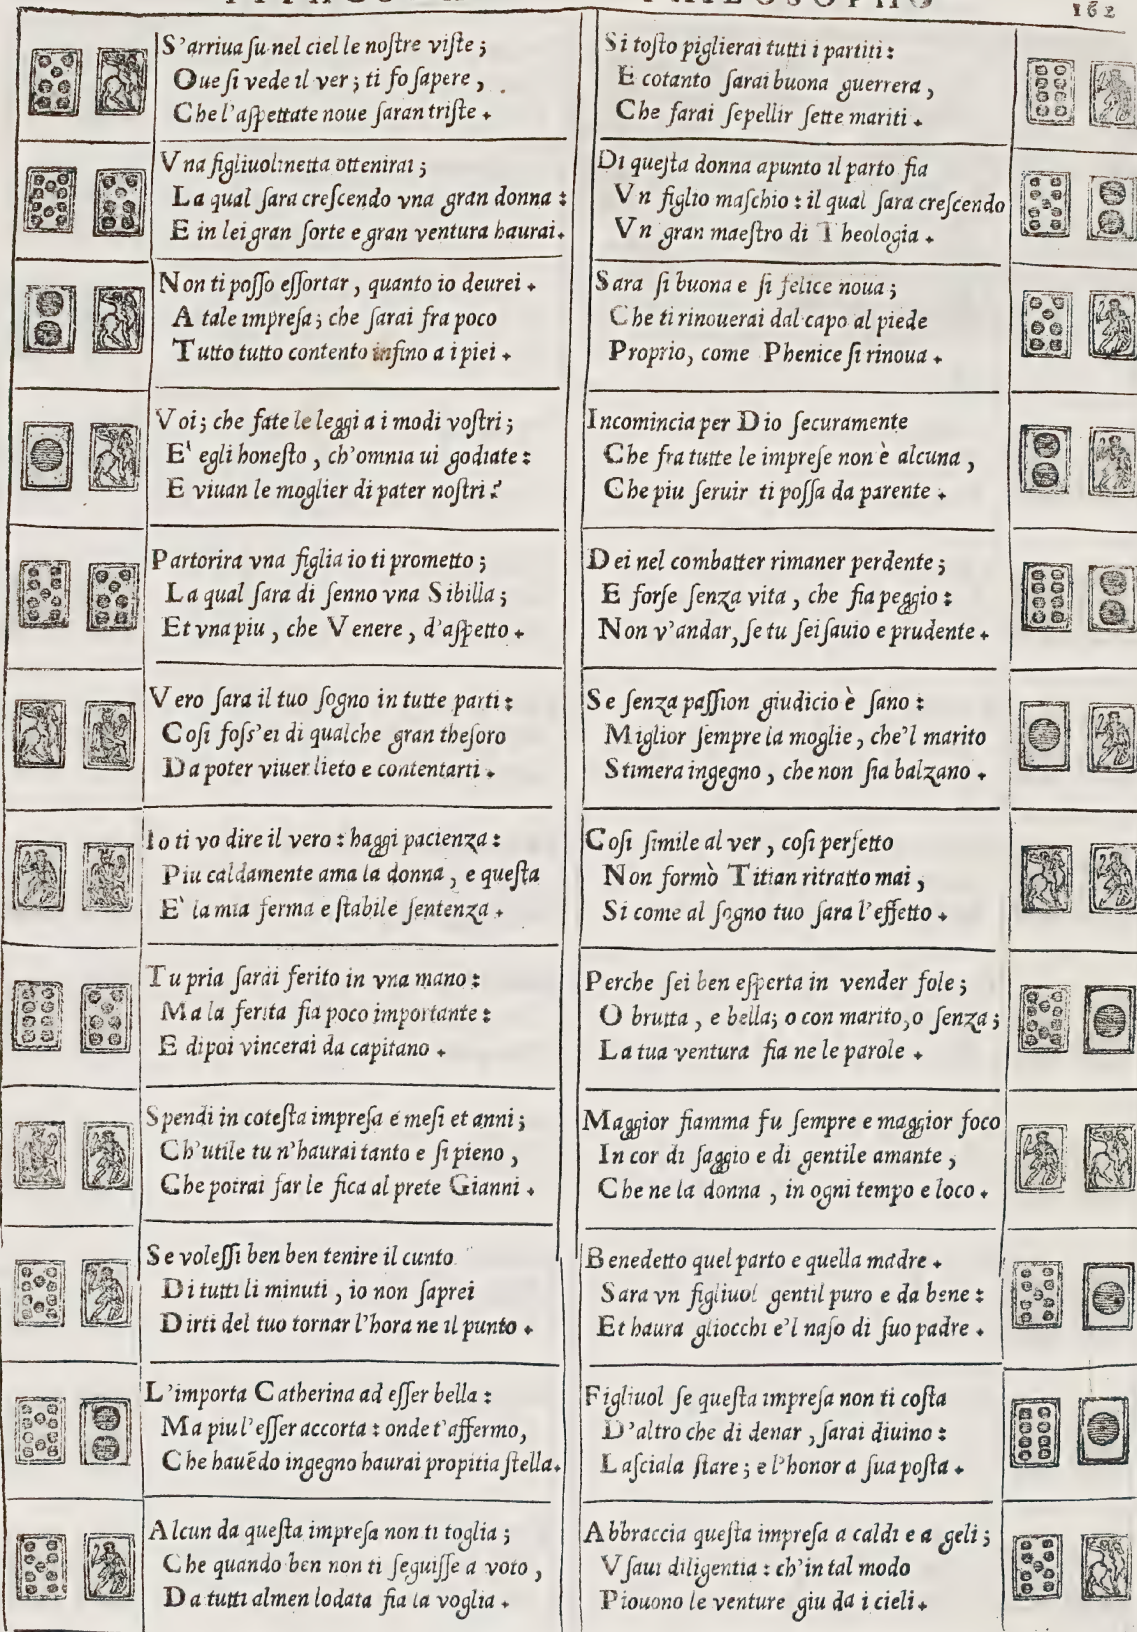 PHILOSOPHO
162
S'arriua su nel ciel le nostre viste;
Oue si vede il ver; ti fo sapere,
Che l'aspettate noue saran triste.
Vna figliuolinetta ottenirai;
La qual sara crescendo vna gran donna:
E in lei gran sorte e gran ventura haurai.
Non ti posso essortar, quanto io deurei.
A tale impresa; che sarai fra poco
Tutto tutto contento infino a i piei.
Voi; che fate le leggi a i modi vostri;
E' egli honesto, ch'omnia ui godiate:
E viuan le moglier di pater nostri?
Partorira vna figlia io ti prometto;
La qual sara di senno vna Sibilla;
Et vna piu, che Venere, d'aspetto.
Vero sara il tuo sogno in tutte parti:
Cosi foss'ei di qualche gran thesoro
Da poter viuer lieto e contentarti.
Io ti vo dire il vero: haggi pacienza:
Piu caldamente ama la donna, e questa
E' la mia ferma e stabile sentenza.
Tu pria sarai ferito in vna mano:
Ma la ferita fia poco importante:
E dipoi vincerai da capitano.
Spendi in cotesta impresa e mesi et anni;
Ch'utile tu n'haurai tanto e si pieno,
Che potrai far le fica al prete Gianni.
Se volessi ben ben tenire il cunto
Di tutti li minuti, io non saprei
Dirti del tuo tornar l'hora ne il punto.
L'importa Catherina ad esser bella:
Ma piu l'esser accorta: onde t'affermo,
Che hauẽdo ingegno haurai propitia stella.
Alcun da questa impresa non ti toglia;
Che quando ben non ti seguisse a voto,
Da tutti almen lodata fia la voglia.
Si tosto piglierai tutti i partiti:
E cotanto sarai buona guerrera,
Che farai sepellir sette mariti.
Di questa donna apunto il parto fia
Vn figlio maschio: il qual sara crescendo
Vn gran maestro di Theologia.
Sara si buona e si felice noua;
Che ti rinouerai dal capo al piede
Proprio, come Phenice si rinoua.
Incomincia per Dio securamente
Che fra tutte le imprese non è alcuna,
Che piu seruir ti possa da parente.
Dei nel combatter rimaner perdente;
E forse senza vita, che fia peggio:
Non v'andar, se tu sei sauio e prudente.
Se senza passion giudicio è sano:
Miglior sempre la moglie, che'l marito
Stimera ingegno, che non sia balzano.
Cosi simile al ver, cosi perfetto
Non formò Titian ritratto mai,
Si come al sogno tuo sara l'effetto.
Perche sei ben esperta in vender fole;
O brutta, e bella; o con marito, o senza;
La tua ventura fia ne le parole.
Maggior fiamma fu sempre e maggior foco
In cor di saggio e di gentile amante,
Che ne la donna, in ogni tempo e loco.
Benedetto quel parto e quella madre.
Sara vn figliuol gentil puro e da bene:
Et haura gliocchi e'l naso di suo padre.
Figliuol se questa impresa non ti costa
D'altro che di denar, sarai diuino:
Lasciala stare; e l'honor a sua posta.
Abbraccia questa impresa a caldi e a geli;
Vsaui diligentia: ch'in tal modo
Piouono le venture giu da i cieli.